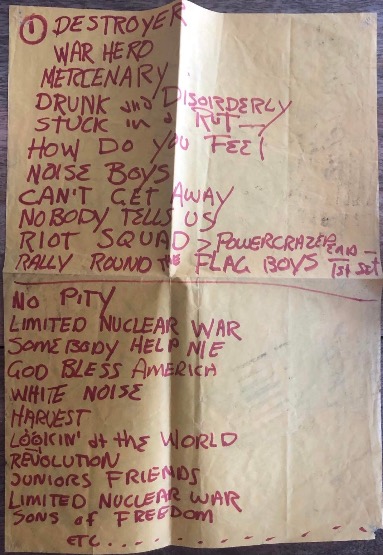 ① DESTROYER
WAR HERO
MERCENARY
DRUNK and DISORDERLY
STUCK in a RUT
HOW DO YOU FEEL
NOISE BOYS
CAN'T GET AWAY
NOBODY TELLS US
RIOT SQUAD > POWERCRAZED
RALLY ROUND THE FLAG BOYS END 1st set
NO PITY
LIMITED NUCLEAR WAR
SOMEBODY HELP ME
GOD BLESS AMERICA
WHITE NOISE
HARVEST
LOOKIN' at the WORLD
REVOLUTION
JUNIORS FRIENDS
LIMITED NUCLEAR WAR
SONS of FREEDOM
ETC. . . . . . . . . . . . .